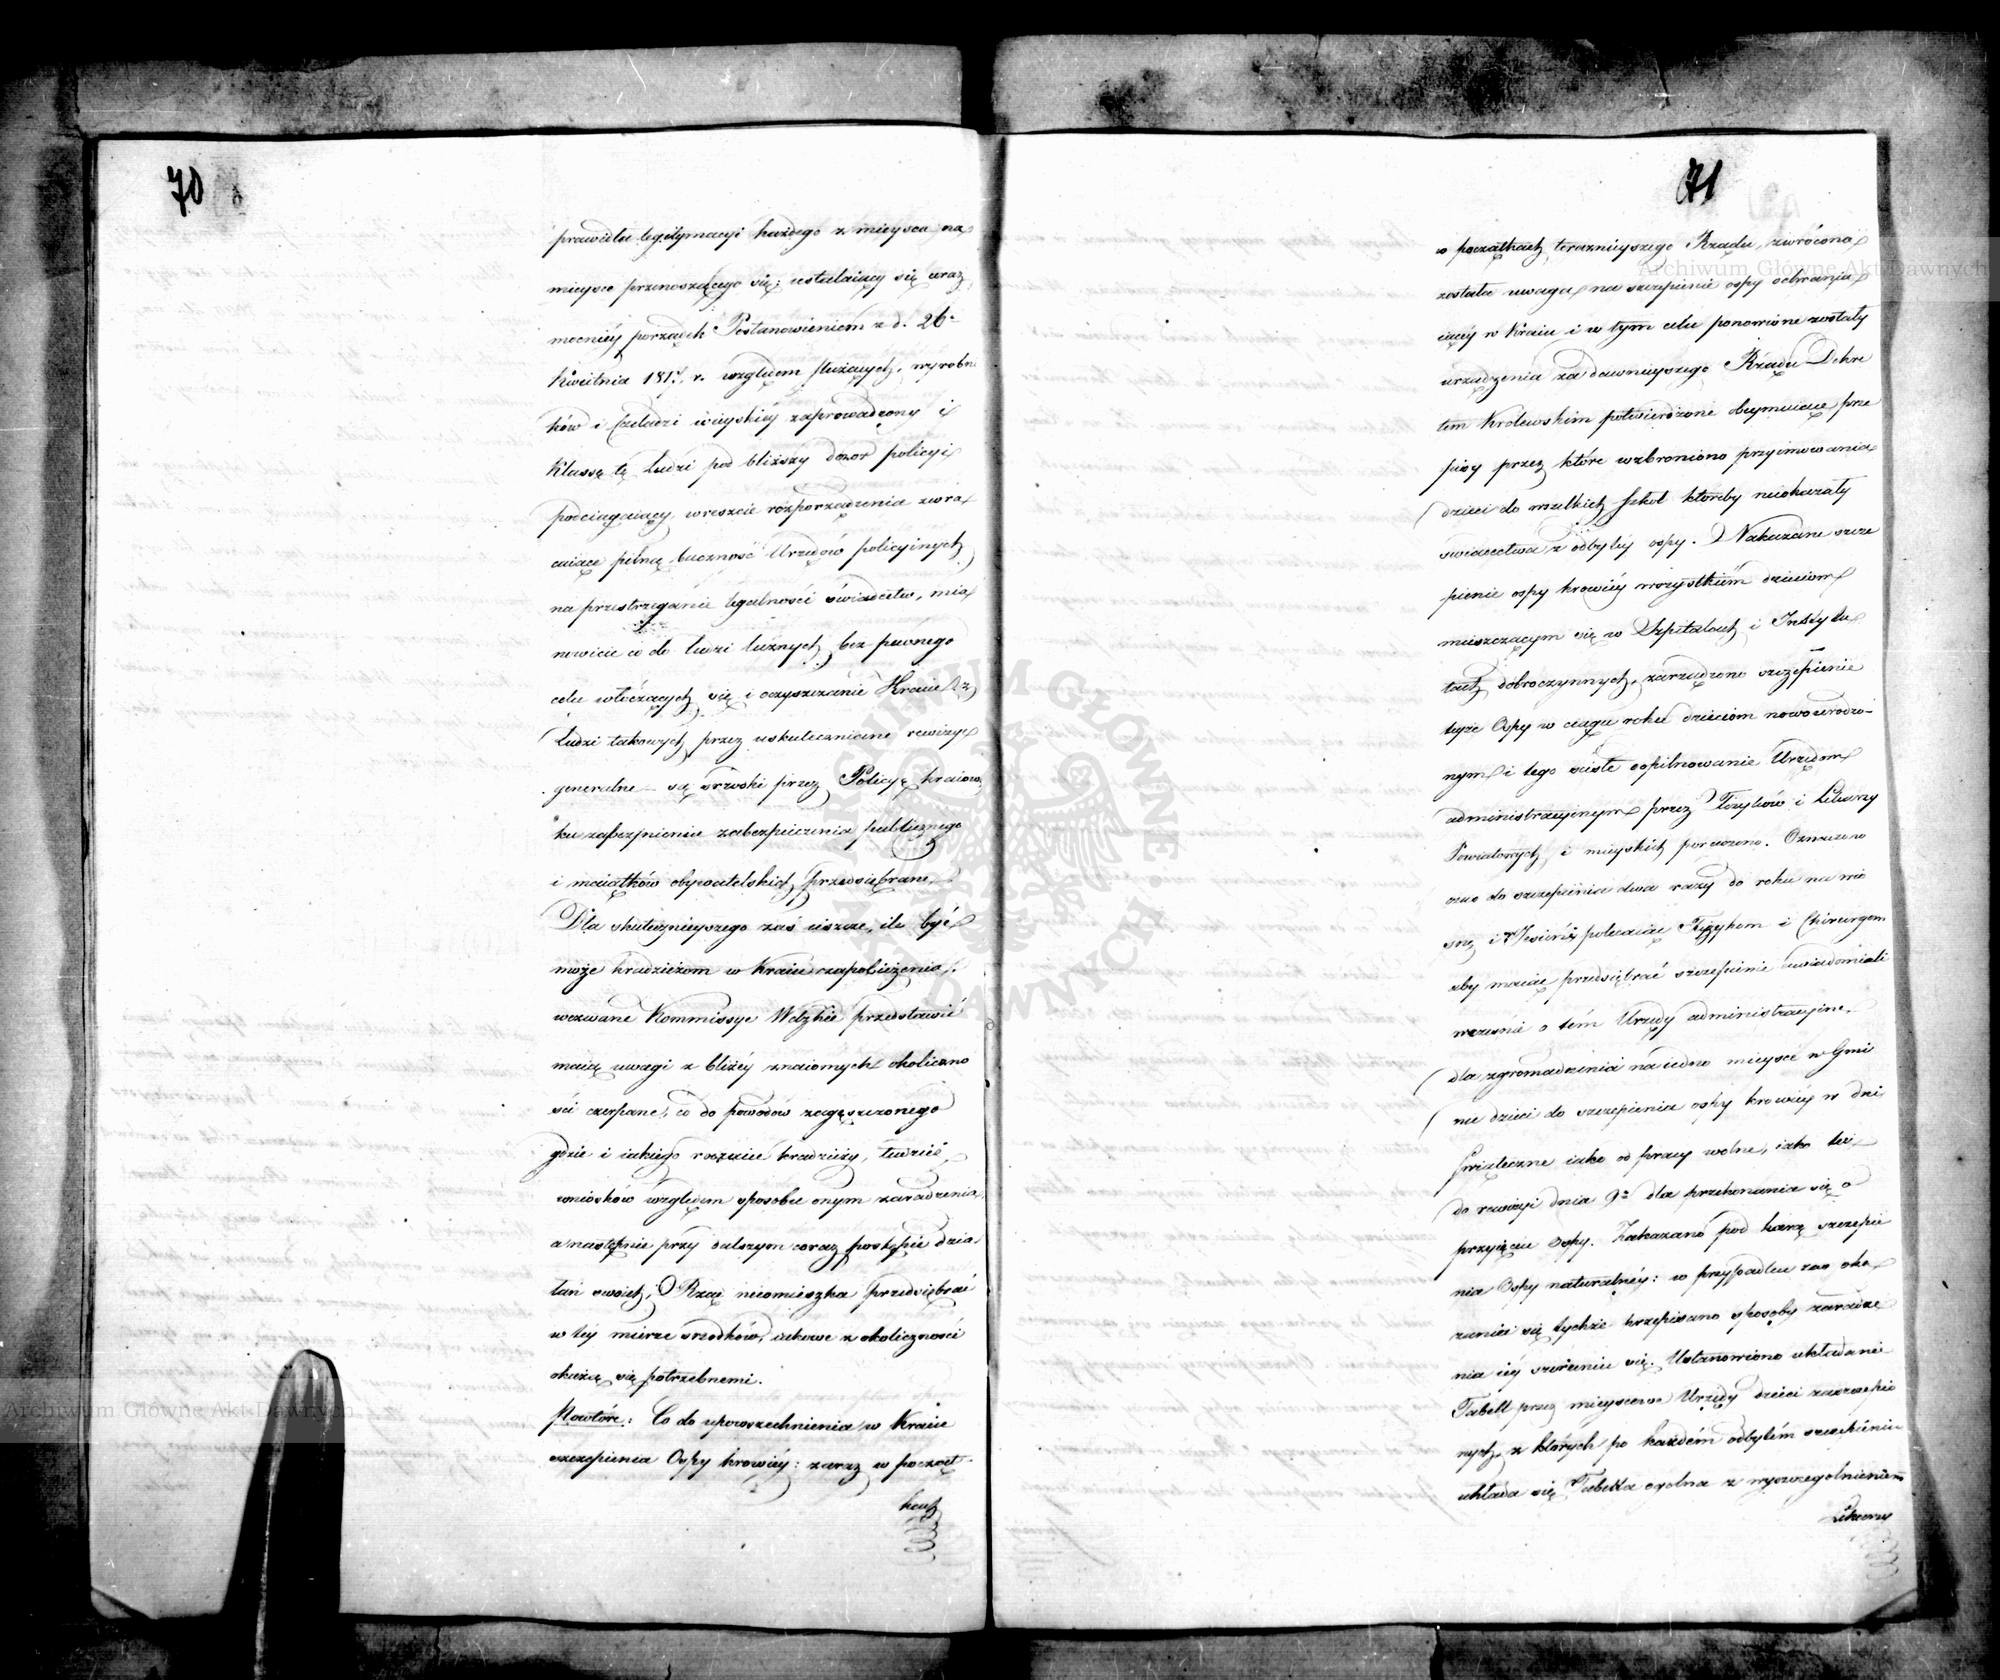 70
prawideł legitymacyi każdego z mieysca na
mieysce przenoszącego się; ustalaiący się coraz
mocniéy porządek Postanowieniem z d. 26.
Kwietnia 1817. r. względem służących, wyrobni
ków i Czeladzi wieyskiéy zaprowadzony i
Klassę tę Ludzi pod bliższy dozor policyi
podciągaiący, wreszcie rozporządzenia zwra
caiące pilną baczność Urzędów policyinych
na przestrzeganie legalności świadectw, mia
nowicie co do ludzi luznych, bez pewnego
celu włóczących się, i oczyszczanie Kraiu z
Ludzi takowych przez uskutecznione rewizye
generalne są srzodki przez Policyę kraiową
ku zabezpieczenia publicznego
i maiątków obywatelskich przedsiębrane.
Dla skutecznieyszego zaś ieszcze, ile być
może kradzieżom w Kraiu zapobieżenia,
wezwane Kommissye Wdzkie przedstawić
maią uwagi z bliżéy znaiomych okoliczno
ści czerpane, co do powodów zagęszczonego
gdzie i iakiego rodzaiu kradzieży, tudzież
wniosków względem sposobu onym zaradzenia,
a następnie przy dalszym coraz postępie dzia
łań swoich, Rząd nieomieszka przedsiębrać
w téy mierze srzodków, iakowe z okoliczności
okażą się potrzebnemi.
Powtóre: Co do upowszechnienia w Kraiu
szczepienia Ospy krowiéy: zaraz w począt
kach
71
w początkach teraznieyszego Rządu, zwrócona
została uwaga na szczepienie ospy ochrania
iącéy w Kraiu i w tym celu ponowione zostały
urządzenia za dawnieyszego Rządu Dekre
tem Królewskim potwierdzone obeymuiące prze
pisy przez które wzbroniono przyimowania
dzieci do wszelkich szkół któreby nieokazały
świadectwa z odbytéy ospy. Nakazane szcze
pienie ospy krowiéy wszystkiém dzieciom
mieszczącym się w Szpitalach i Instytu
tach dobroczynnych, zarządzono szczepienie
teyże Ospy w ciągu roku dzieciom nowourodzo-
nym i tego ściśle dopilnowanie Urzędom
administracyinym przez Fizyków i Lekarzy
Powiatowych i mieyskich poruczono. Oznaczono
czas do szczepienia dwa razy do roku na wio
snę i Jesień polecaiąc Fizykom i Chirurgom
aby maiąc przedsiębrać szczepienie uwiadomiali
wczesnie o tém Urzędy administracyine,
dla zgromadzenia na iedno mieysce w Gmi
nie dzieci do szczepienia ospy krowiéy w dni
Swiąteczne iako od pracy wolne, iako też
do rewizyi dnia 9º dla przekonania się o
przyięciu Ospy. Zakazano pod karą szczepie
nia Ospy naturalnéy: w przypadku zas oka
zania się tychże przepisano sposoby zaradze
nia iéy szerzeniu się. Ustanowiono układanie
Tabell przez mieyscowe Urzędy dzieci zaszczepio
nych, z których po każdém odbytém szczepieniu
układa się Tabella ogólna z wyszczegolnieniem
Lekarzy
Archiwum Główne Akt Dawnych
Archiwum Główne Akt Dawnych
ARCHIWUM GŁÓWNE AKT DAWNYCH